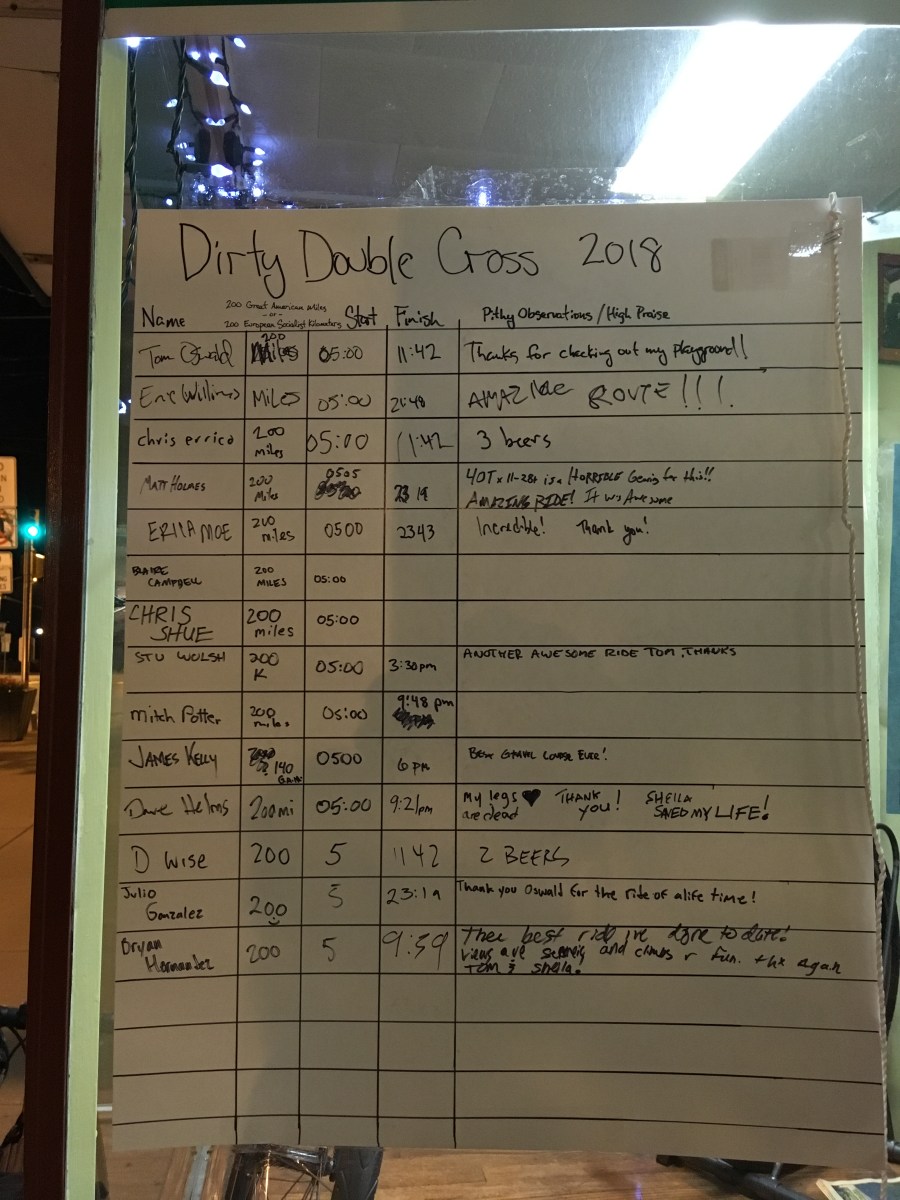 Dirty Double Cross 2018
Name 200 Great American Miles -or- 200 European Socialist Kilometers Start Finish Pithy Observations / High Praise
Tom Oswald 200 Miles 05:00 11:42 Thanks for checking out my playground!
Eric Williams Miles 05:00 21:48 AMAZING ROUTE!!!
chris errico 200 miles 05:00 11:42 3 beers
MATT HOLMES 200 Miles 0505 23 19 40T x 11-28t is a HORRIBLE Gearing for this!!
AMAZING RIDE! It was Awesome
ERICA MOE 200 miles 0500 2343 Incredible! Thank you!
BLAIRE CAMPBELL 200 MILES 05:00
CHRIS SHUE 200 miles 05:00
STU WOLSH 200 K 05:00 3:30pm ANOTHER AWESOME RIDE TOM, THANKS
Mitch Potter 200 miles 05:00 9:48 pm
JAMES KELLY 140 0500 6 PM BEST GRAVEL COURSE EVER!
Dave Helms 200mi 05:00 9:21pm My legs are dead ♥ THANK YOU! SHEILA SAVED MY LIFE!
D WISE 200 5 1142 2 BEERS
Julio Gonzalez 200 5 23:19 Thank you Oswald for the ride of a life time!
Bryan Hernandez 200 5 9:59 Thee best ride ive done to date!
Views are serenity and climbs r fun. thx Again
Tom & Sheila.